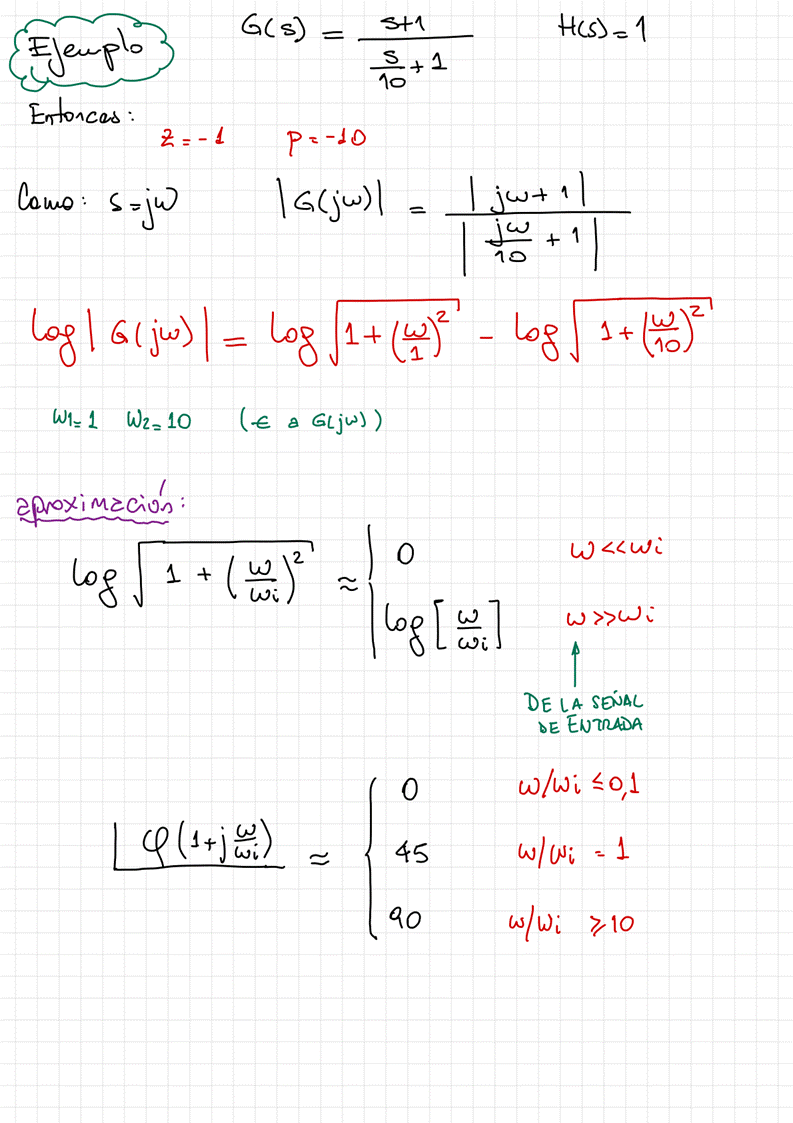 Ejemplo G(s) = (s+1) / (s/10 + 1) H(s) = 1
Entonces:
z = -1 p = -10
Como: s = jω |G(jω)| = |jω + 1| / |jω/10 + 1|
log|G(jω)| = log √(1 + (ω/1)²) - log √(1 + (ω/10)²)
ω1 = 1 ω2 = 10 (∈ a G(jω))
aproximación:
log √(1 + (ω/ωi)²) ≈
0 ω << ωi
log [ω/ωi] ω >> ωi
DE LA SEÑAL
DE ENTRADA
φ(1 + j ω/ωi) ≈
0 ω/ωi ≤ 0,1
45 ω/ωi = 1
90 ω/ωi ≥ 10